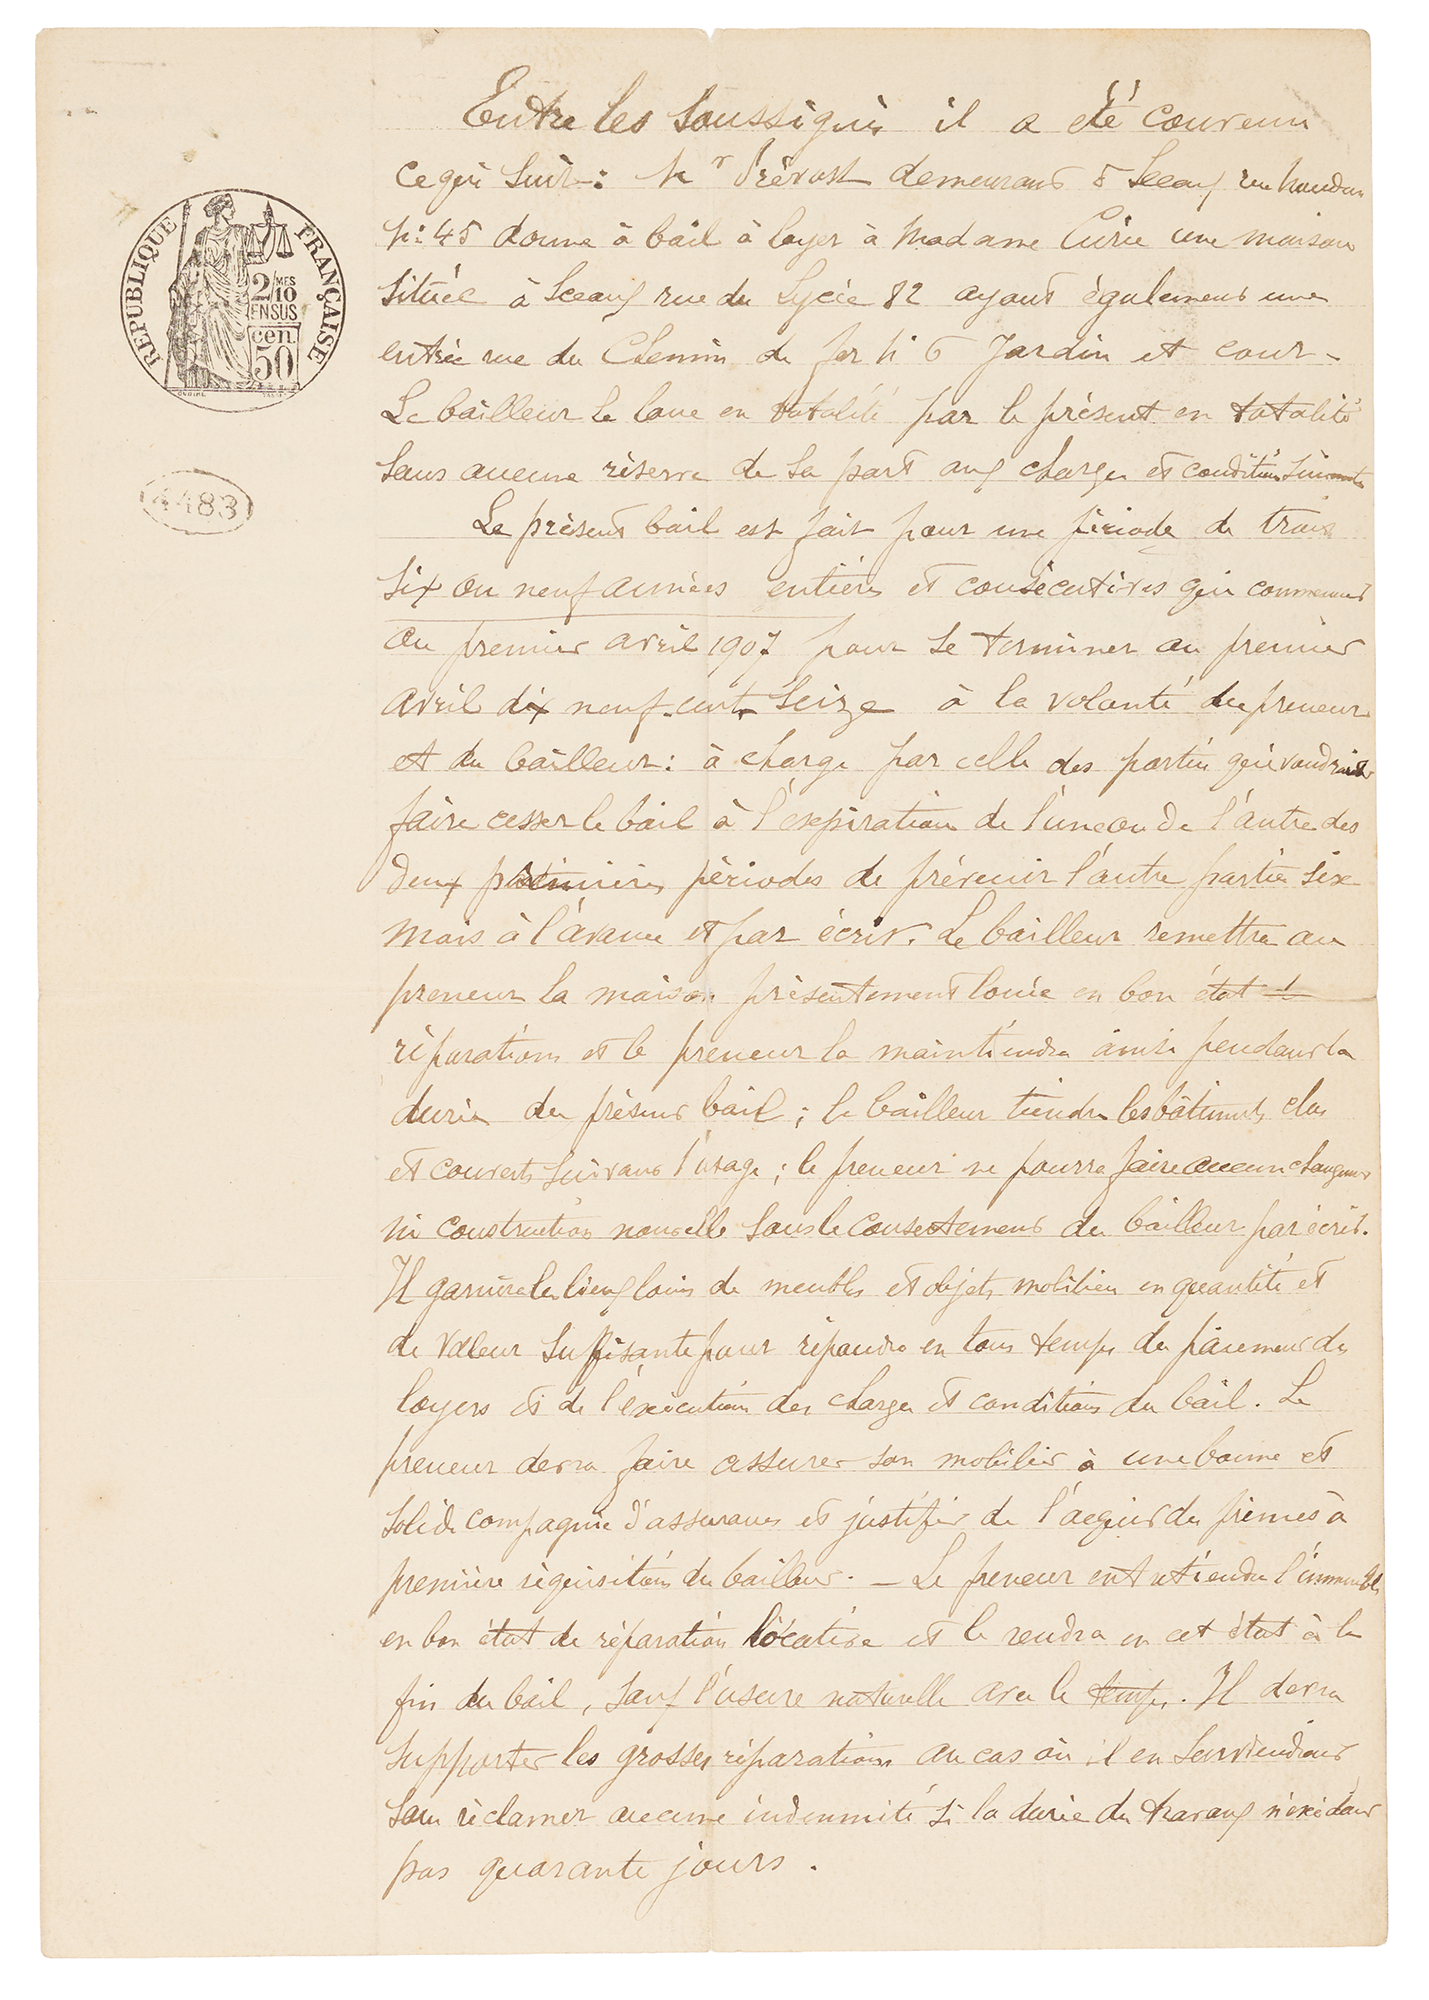 RÉPUBLIQUE FRANÇAISE
2/MES
10
EN SUS
cen.
50
4483
Entre les soussignés il a été convenu
ce qui suit : Mr Prévost demeurant à Sceaux rue houdan
N: 45 donne à bail à loyer à Madame Curie une maison
située à Sceaux rue du Lycée 82 ayant également une
entrée rue du Chemin de fer N 6 Jardin et cour -
Le bailleur le loue en totalité par le présent en totalité
sans aucune réserve de sa part aux charges et conditions suivantes
Le présent bail est fait pour une période de trois
six ou neuf années entières et consécutives qui commencent
au premier avril 1907 pour se terminer au premier
avril dix neuf-cent seize à la volonté du preneur
et du bailleur : à charge par celle des parties qui voudrait
faire cesser le bail à l'expiration de l'une ou de l'autre des
deux premières périodes de prévenir l'autre partie six
mois à l'avance et par écrit. Le bailleur remettra au
preneur la maison présentement louée en bon état
réparations et le preneur la maintiendra ainsi pendant la
durée du présent bail ; le bailleur tiendra les bâtiments clos
et couverts suivant l'usage ; le preneur ne pourra faire aucun changement
ni construction nouvelle sans le consentement du bailleur par écrit.
Il garnira les lieux loués de meubles et objets mobiliers en quantité et
de valeur suffisante pour répondre en tous temps du paiement des
loyers et de l'exécution des charges et conditions du bail. Le
preneur devra faire assurer son mobilier à une bonne et
solide compagnie d'assurances et justifier de l'acquit des primes à
première réquisition du bailleur. - Le preneur entretiendra l'immeuble
en bon état de réparation locative et le rendra en cet état à la
fin du bail, sauf l'usure naturelle avec le temps. Il devra
supporter les grosses réparations au cas où il en surviendrait
sans réclamer aucune indemnité si la durée des travaux n'excédait
pas quarante jours.